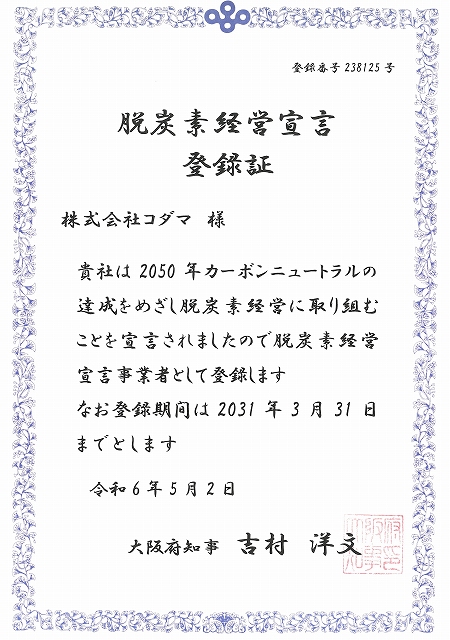 登録番号238125号
脱炭素経営宣言
登録証
株式会社コダマ 様
貴社は2050年カーボンニュートラルの
達成をめざし脱炭素経営に取り組む
ことを宣言されましたので脱炭素経営
宣言事業者として登録します
なお登録期間は2031年3月31日
までとします
令和6年5月2日
大阪府知事 吉村 洋文